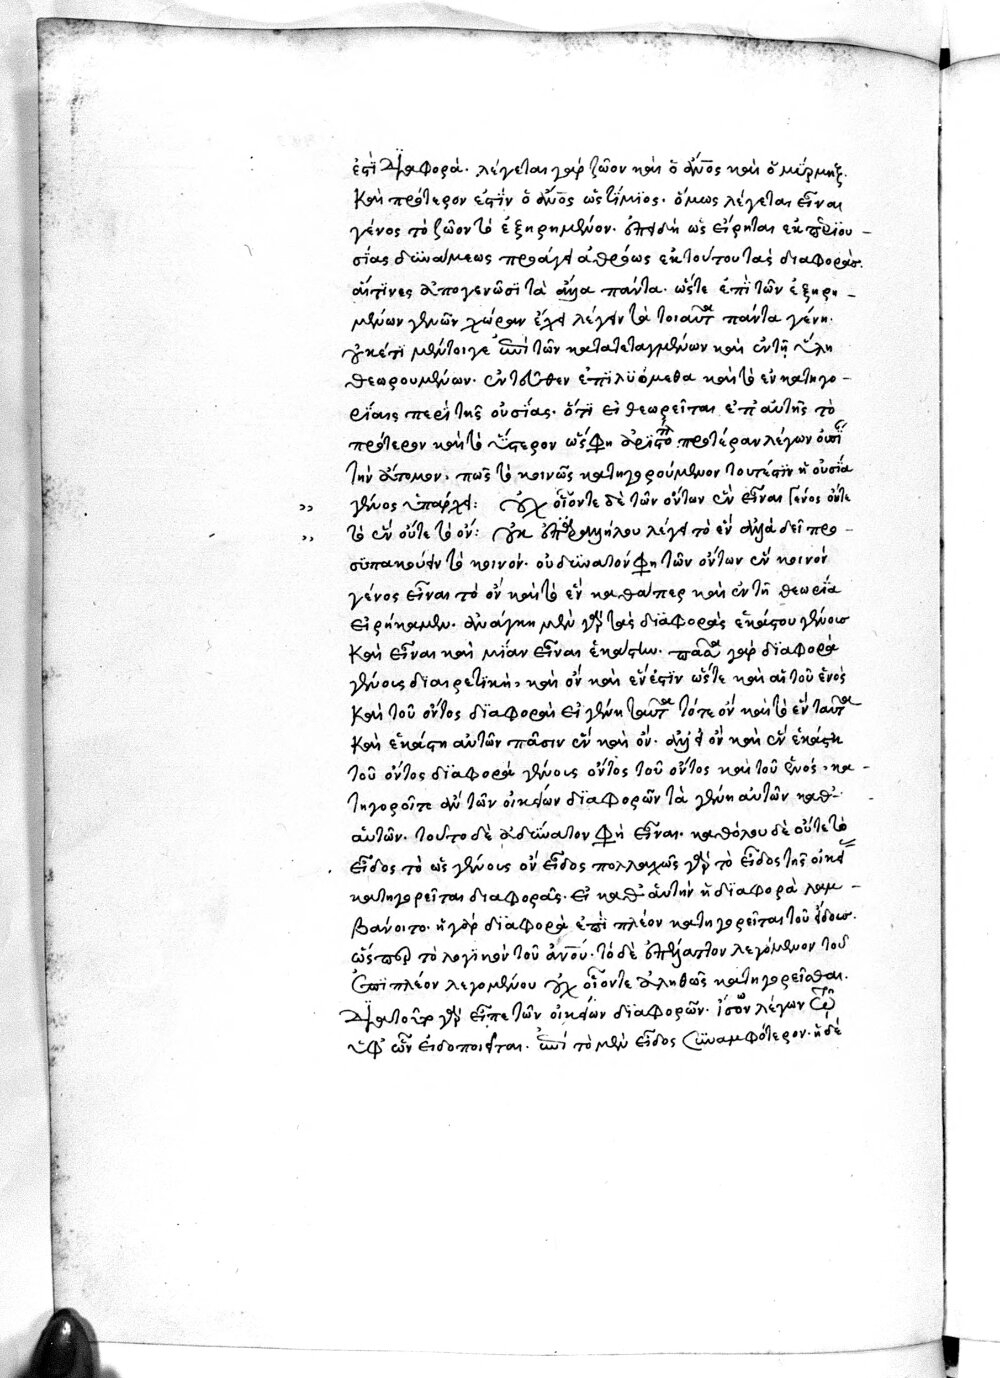 ἐστὶ διαφορά. λέγεται γὰρ ζῶον καὶ ὁ ἄνος καὶ ὁ μύρμηξ.
καὶ πρότερον ἐστὶν ὁ ἄνος ὡς τίμιος. ὅμως λέγεται εἶναι
γένος τὸ ζῶον τὸ ἐξηρημένον. ἐπειδὴ ὡς εἴρηται ἐκ περιου-
σίας δυνάμεως προάγει ἀθρόως ἐκ τούτου τὰς διαφοράς.
αἵτινες ἀπογενῶσι τὰ ἄλλα πάντα. ὥστε ἐπὶ τῶν ἐξηρη-
μένων γενῶν χώραν ἔχει λέγειν τὰ τοιαῦτα πάντα γένη.
οὐκέτι μέντοιγε ἐπὶ τῶν κατατεταγμένων καὶ ἐν τῇ ὕλῃ
θεωρουμένων. ἐντεῦθεν ἐπιλυόμεθα καὶ τὸ ἐν κατηγο-
ρίαις περὶ τῆς οὐσίας. ὅτι εἰ θεωρεῖται ἐπ' αὐτῆς τὸ
πρότερον καὶ τὸ ὕστερον ὥς φη ἀριστο προτέραν λέγων οὐσί
τὴν ἄτομον. πῶς τὸ κοινῶς κατηγορούμενον τουτέστιν ἡ οὐσία
γένος ὑπάρχει: οὐχ οἷόντε δὲ τῶν ὄντων ἓν εἶναι γένος οὔτε
τὸ ἓν οὔτε τὸ ὄν: οὐκ ἐπαλλήλου λέγει τὸ ἓν ἀλλὰ δεῖ προ-
συπακούειν τὸ κοινόν. οὐ δυνατόν φη τῶν ὄντων ἓν κοινὸν
γένος εἶναι τὸ ὂν καὶ τὸ ἓν καθάπερ καὶ ἐν τῇ θεωρία
εἰρήκαμεν. ἀνάγκη μὲν γὰρ τὰς διαφορὰς ἑκάστου γένους
καὶ εἶναι καὶ μίαν εἶναι ἑκάστην. πᾶσα γὰρ διαφορὰ
γένους διαιρετικὴ, καὶ ὂν καὶ ἕν ἐστιν ὥστε καὶ αἱ τοῦ ἑνὸς
καὶ τοῦ ὄντος διαφοραὶ εἰ γένη ταῦτα τότε ὂν καὶ τὸ ἓν ταῦτα
καὶ ἑκάστη αὐτῶν πᾶσιν ἓν καὶ ὄν. ἀλλ' εἰ ὂν καὶ ἓν ἑκάστη
τοῦ ὄντος διαφορὰ γένους ὄντος τοῦ ὄντος καὶ τοῦ ἑνός, κα-
τηγοροῖτο ἂν τῶν οἰκείων διαφορῶν τὰ γένη αὐτῶν καθ'
αὑτῶν. τοῦτο δὲ ἀδύνατον φη εἶναι. καθόλου δὲ οὔτε τὸ
εἶδος τὸ ὡς γένους ὂν εἶδος πολλαχῶς γὰρ τὸ εἶδος τῆς οἰκεί
κατηγορεῖται διαφορᾶς. εἰ καθ' αὑτὴν ἡ διαφορὰ λαμ-
βάνοιτο. ἡ γὰρ διαφορὰ ἐπὶ πλέον κατηγορεῖται τοῦ εἴδους.
ὥσπερ τὸ λογικὸν τοῦ ἀνου. τὸ δὲ ἐπέλαττον λεγόμενον τοῦ
ἐπὶ πλέον λεγομένου οὐχ οἷόντε ἀληθῶς κατηγορεῖσθαι.
διατοῦτο γὰρ εἶπε τῶν οἰκείων διαφορῶν. ἴσον λέγων
ὑφ' ὧν εἰδοποιεῖται. ἐπεὶ τὸ μὲν εἶδος συναμφότερον. ἡ δὲ